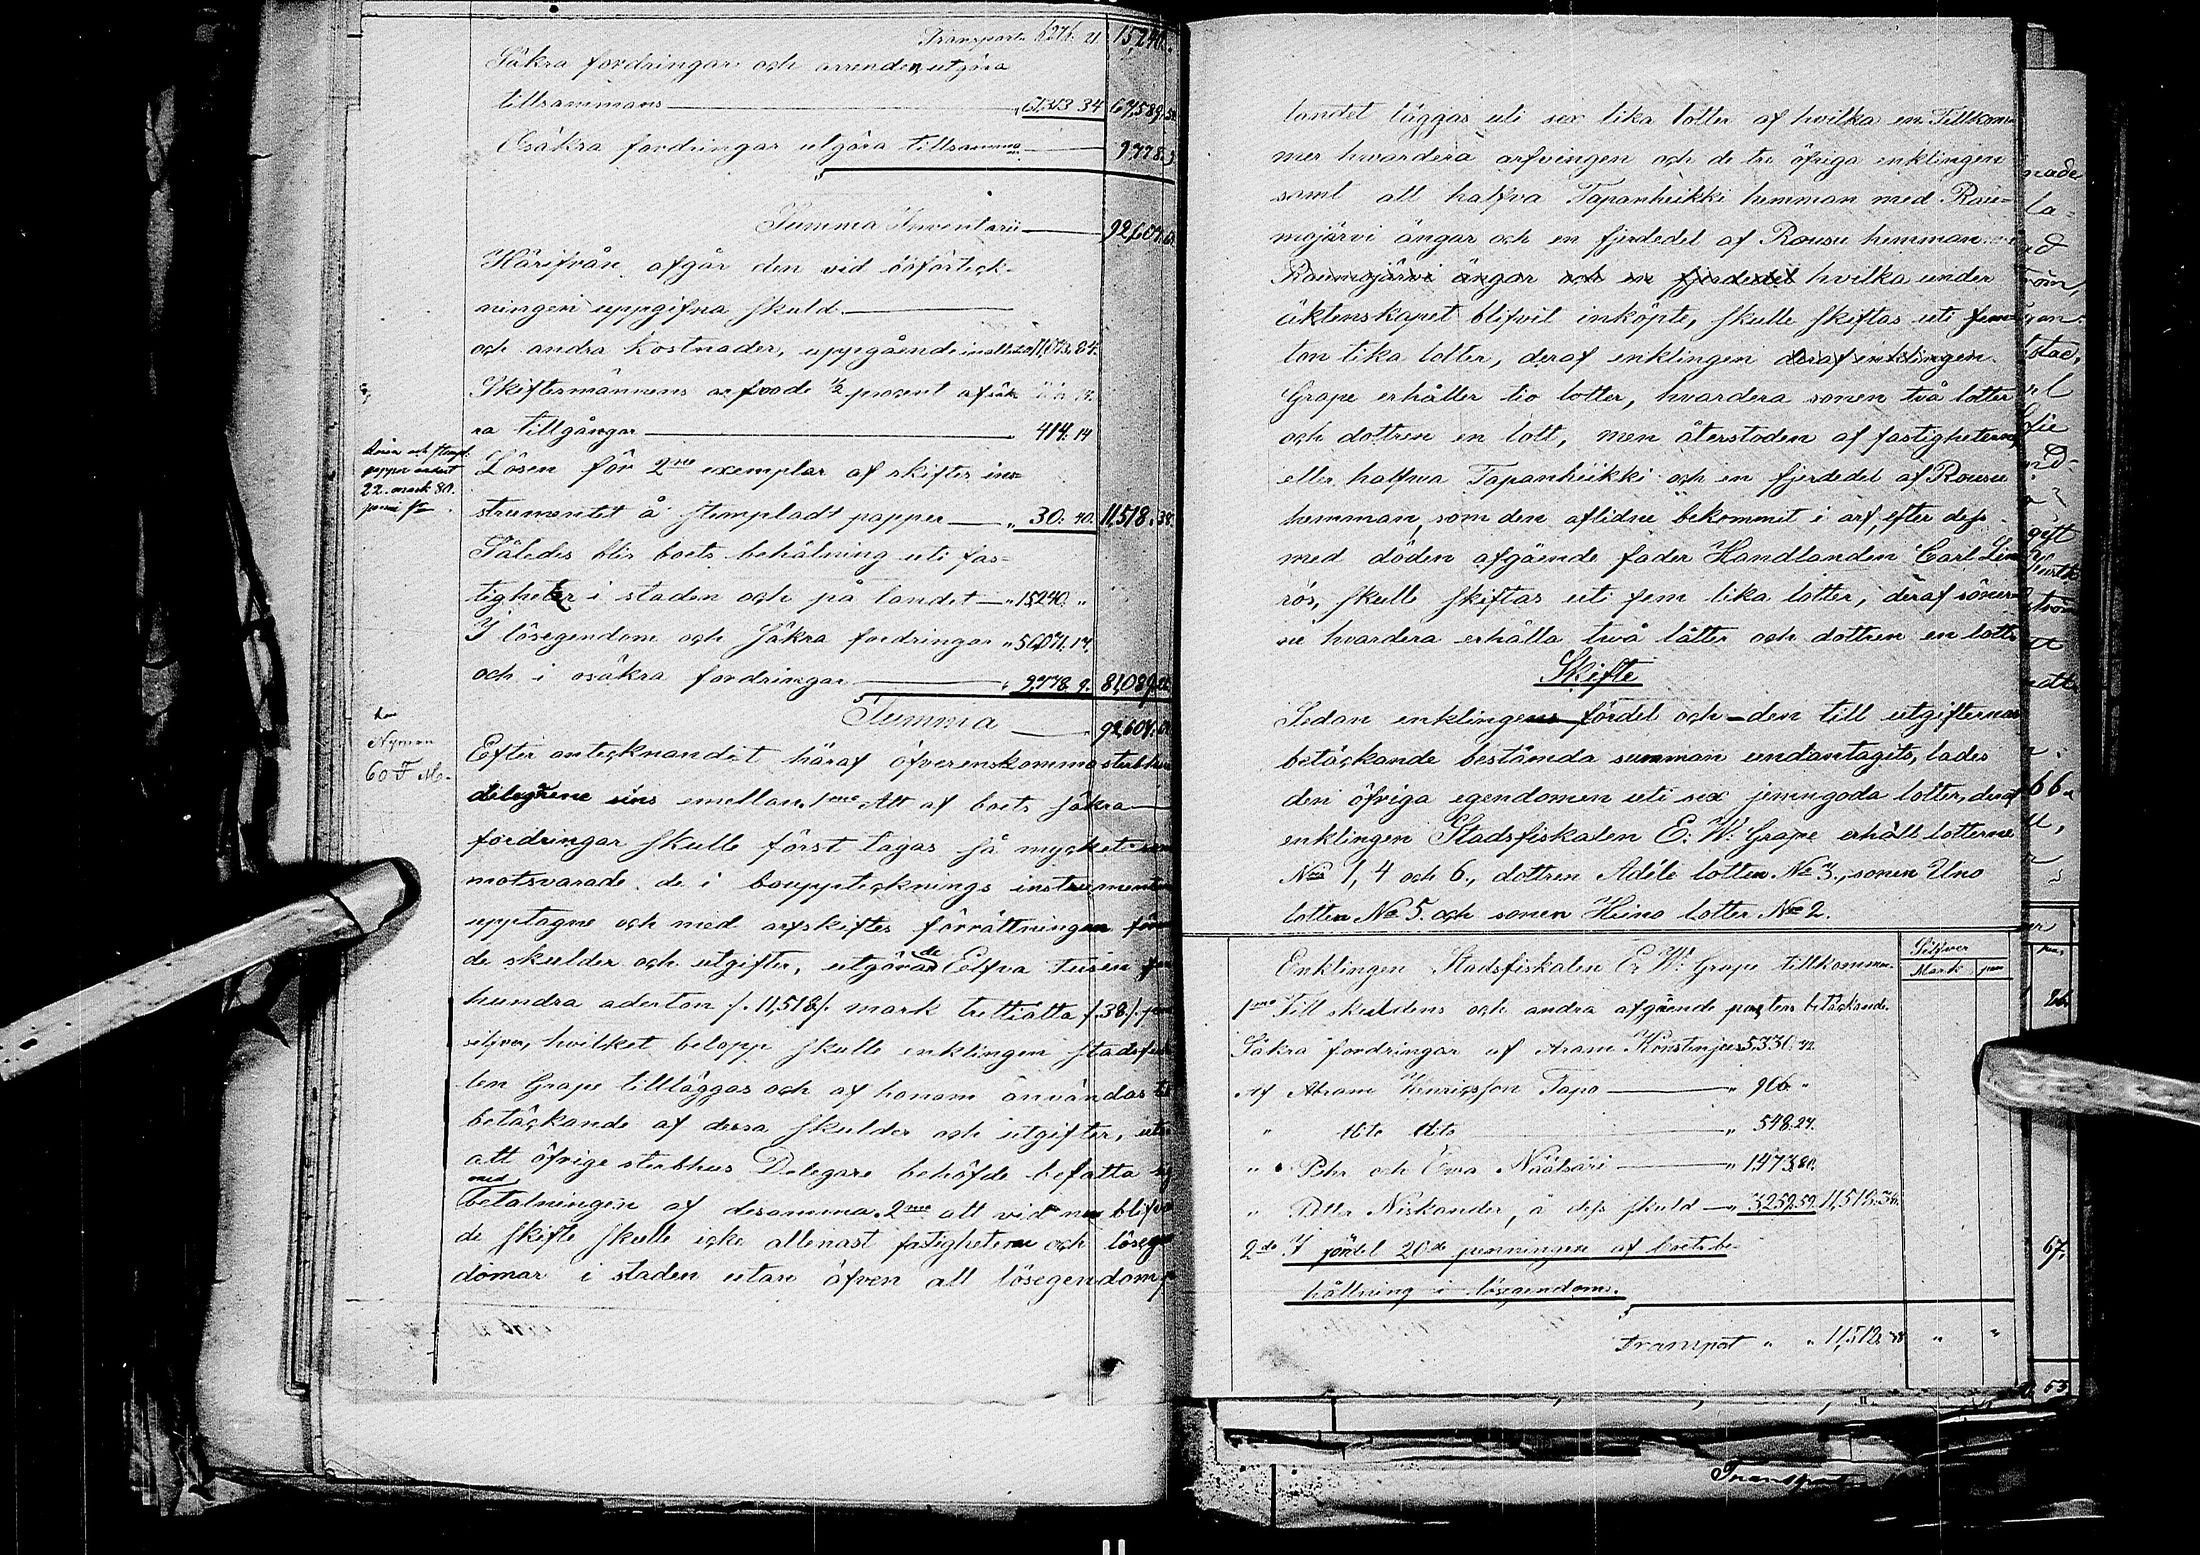 Transport 6276. 21. 15,240.
Säkra fordringar och arrenden utgöra
tillsammans 61,313 34 67,589.
Osäkra fordringar utgöra tillsamman 9778.
Summa Inventarii 92,607.
Härifrån afgår den vid
ningen uppgifna skuld
och andra kostnader, uppgående 11,073. 84.
Skiftermännens arfvode 1/2 procent af säk
ra tillgångar 414. 14
Lösen för 2ne exemplar af skiftes in
strumentet å stempladt papper 30. 40. 11,518. 38.
Således blir boets behålning uti fas=
tigheter i staden och på landet 15,240. "
I lösegendom och säkra fordringar " 56,071. 14.
och i osäkra fordringar 9,778. 9. 81,089.
Summa 92,607.
22. mark 80.
Nyman
60 F. M.
Efter antecknandet häraf öfverenskommo sterbhus
delegarene sins emellan, 1mo Att af boets säkra
fordringar skulle först tagas så mycket som
motsvarade de i bouppteknings instrumentet
upptagne och med arfskiftes förrättningen
de skulder och utgifter, utgörande Elfva Tusen fem
hundra aderton /. 11,518 /. mark trettiåtta /. 38 /. penni
silfver, hvilket belopp skulle enklingen stadsfiska
len Grape tilläggas och af honom användas till
betäckande af dessa skulder och utgifter, utan
att öfrige sterbhus Delegare behöfde befatta sig
med
betalningen af desamma. 2mo att vid nu blifvan
de skifte skulle icke allenast fastigheterne och lösege
domar i staden utan äfven all lösegendom på
landet läggas uti sex lika lotter af hvilka en Tillkom
mer hvardera arfvingen och de tre öfriga enklingen
samt att halfva Tapanheikki hemman med Rau=
mojärvi ängar och en fjerdedel af Rousu hemman
Raumojärvi ängar och en fjerdedel hvilka under
äktenskapet blifvit inköpte, skulle skiftas uti fem
ton lika lotter, deraf enklingen deraf enklingen
Grape erhåller tio lotter, hvardera sonen två lotter
och dottren en lott, men återstoden af fastigheterne
eller halfva Tapanheikki och en fjerdedel af Rousu
hemman, som den aflidne bekommit i arf, efter dess
med döden afgångne fader Handlanden Carl Lin
rös, skulle skiftas uti fem lika lotter, deraf söner
ne hvardera erhålla två lotter och dottren en lott.
Skifte
Sedan enklingens fördel och den till utgifternas
betäckande bestämda summan undantagits, lades
den öfriga egendomen uti sex jemngoda lotter, deraf
enklingen Stadsfiskalen E. W. Grape erhöll lotterne
No 1, 4 och 6., dottren Adéle lotten No 3., sonen Uno
lotten No 5. och sonen Heino lotten No 2.
Silfver
Enklingen Stadsfiskalen E. W. Grape tillkommer. Mark pni
1mo Till skuldens och andra afgående posters betäckande.
Säkra fordringar af Aram Konstenjus 5330.
Af Abram Henricsson Tapo " 906. "
" dito dito " 548. 27.
" Pehr och Ewa Näätsäri " 1473,80.
" Petter Niskander, å dess skuld " 3259. 59. 11,518. 38.
2do I fördel 20de penningen af boets be-
hållning i lösegendom.
Transport " " 11,518 38 " "
Transport